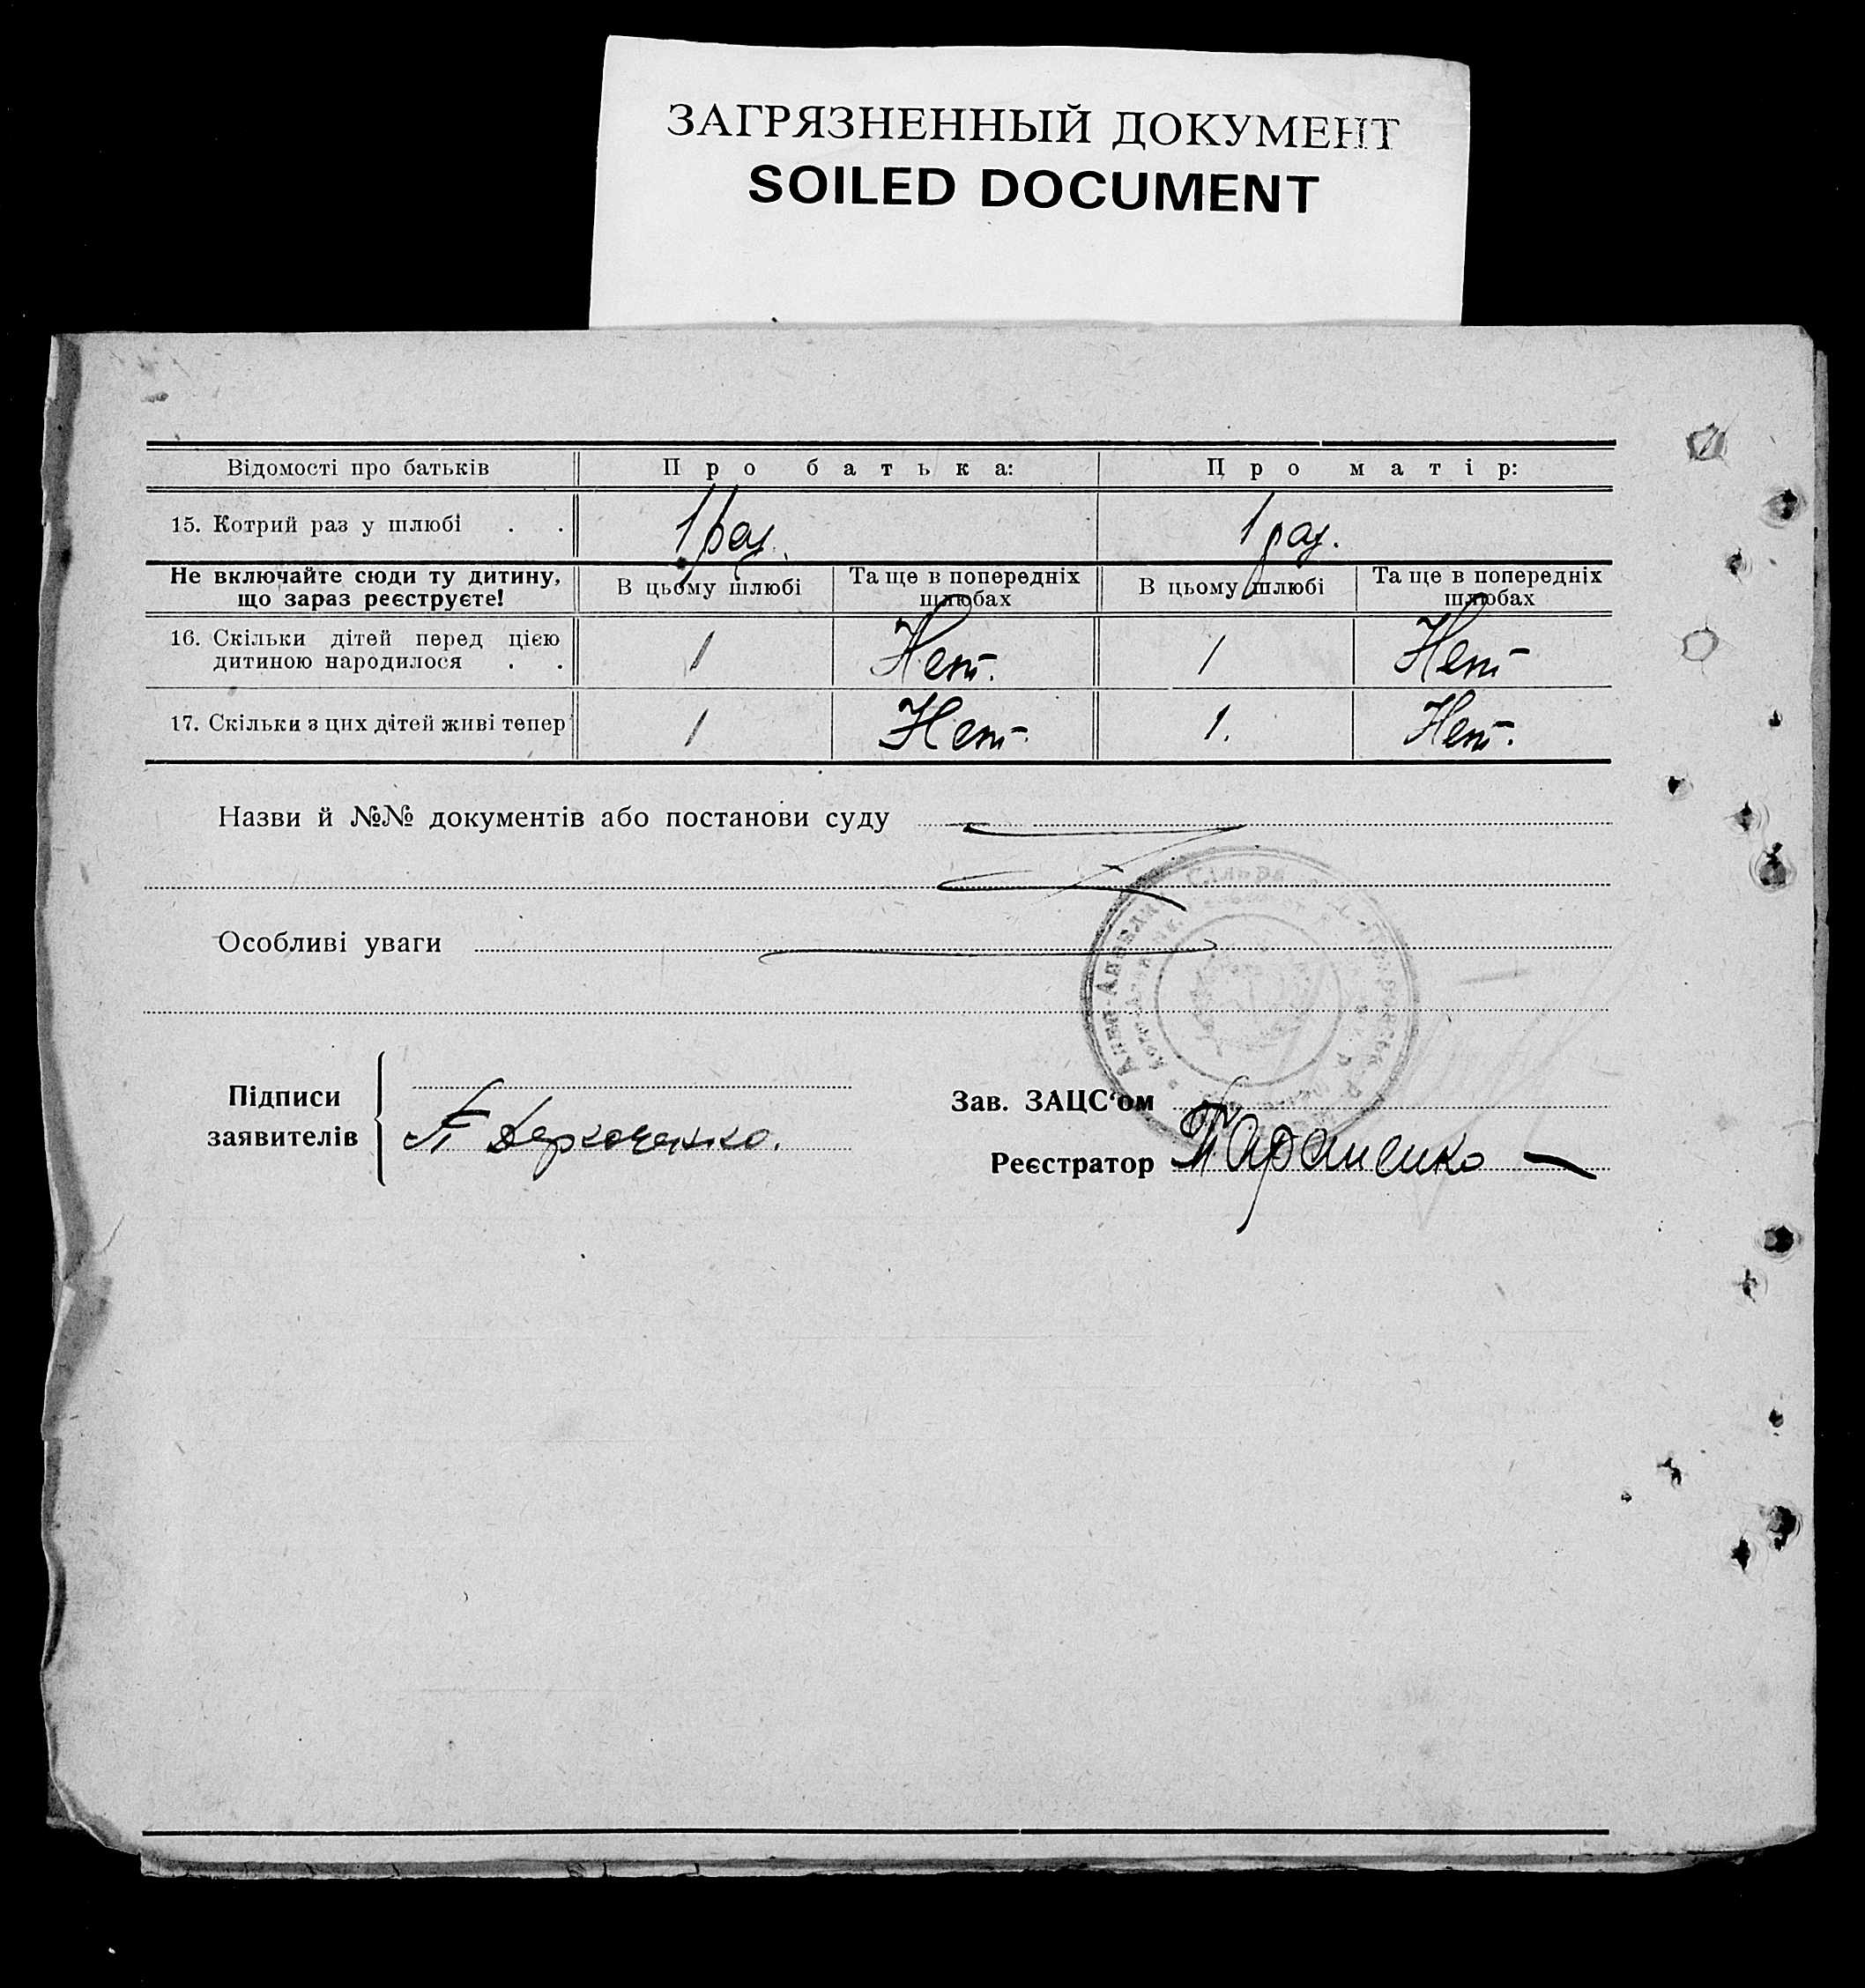 ЗАГРЯЗНЕННЫЙ ДОКУМЕНТ
SOILED DOCUMENT
Відомості про батьків Про батька: Про матір:
15. Котрий раз у шлюбі . . 1 раз. 1 раз.
Не включайте сюди ту дитину, що зараз реєструєте! В цьому шлюбі Та ще в попередніх шлюбах В цьому шлюбі Та ще в попередніх шлюбах
16. Скільки дітей перед цією
дитиною народилося . . 1 Нет. 1 Нет
17. Скільки з цих дітей живі тепер 1 Нет. 1. Нет.
Назви й №№ документів або постанови суду
Особливі уваги
Підписи
заявителів
Зав. ЗАЦС'ом
Реєстратор Тараненко